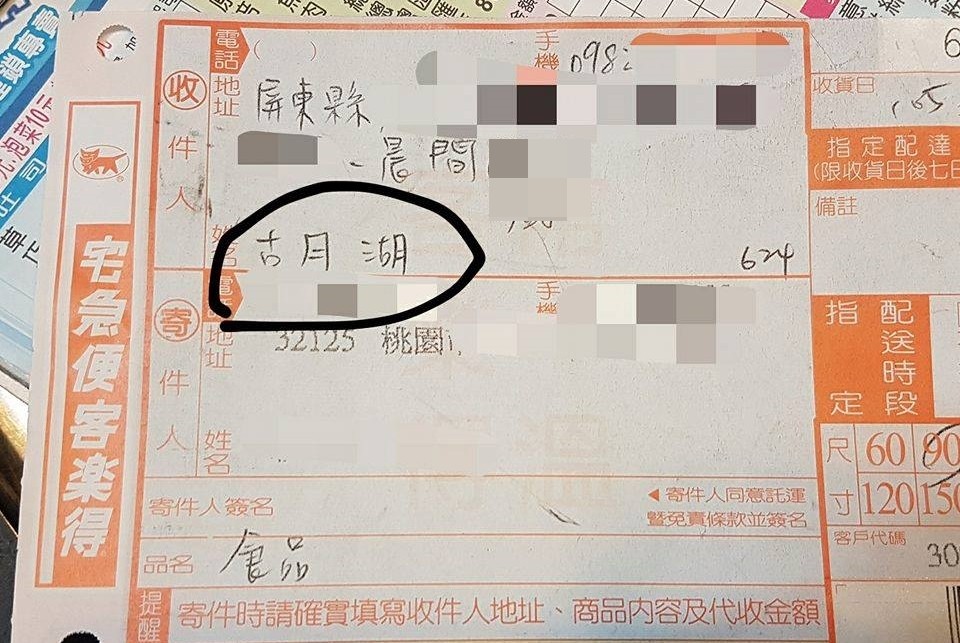 電話 ( ) 手機 098
收件人
地址 屏東縣
晨間
姓名 古月湖
624
電話 手機
寄件人
地址 32125 桃園
姓名
寄件人簽名
◀寄件人同意託運
暨免責條款並簽名
品名 食品
提醒 寄件時請確實填寫收件人地址、商品內容及代收金額
宅急便客楽得
6
收貨日
105
指定配達
(限收貨日後七日
備註
指定
配送時段
尺寸
60 90
120 150
客戶代碼
30